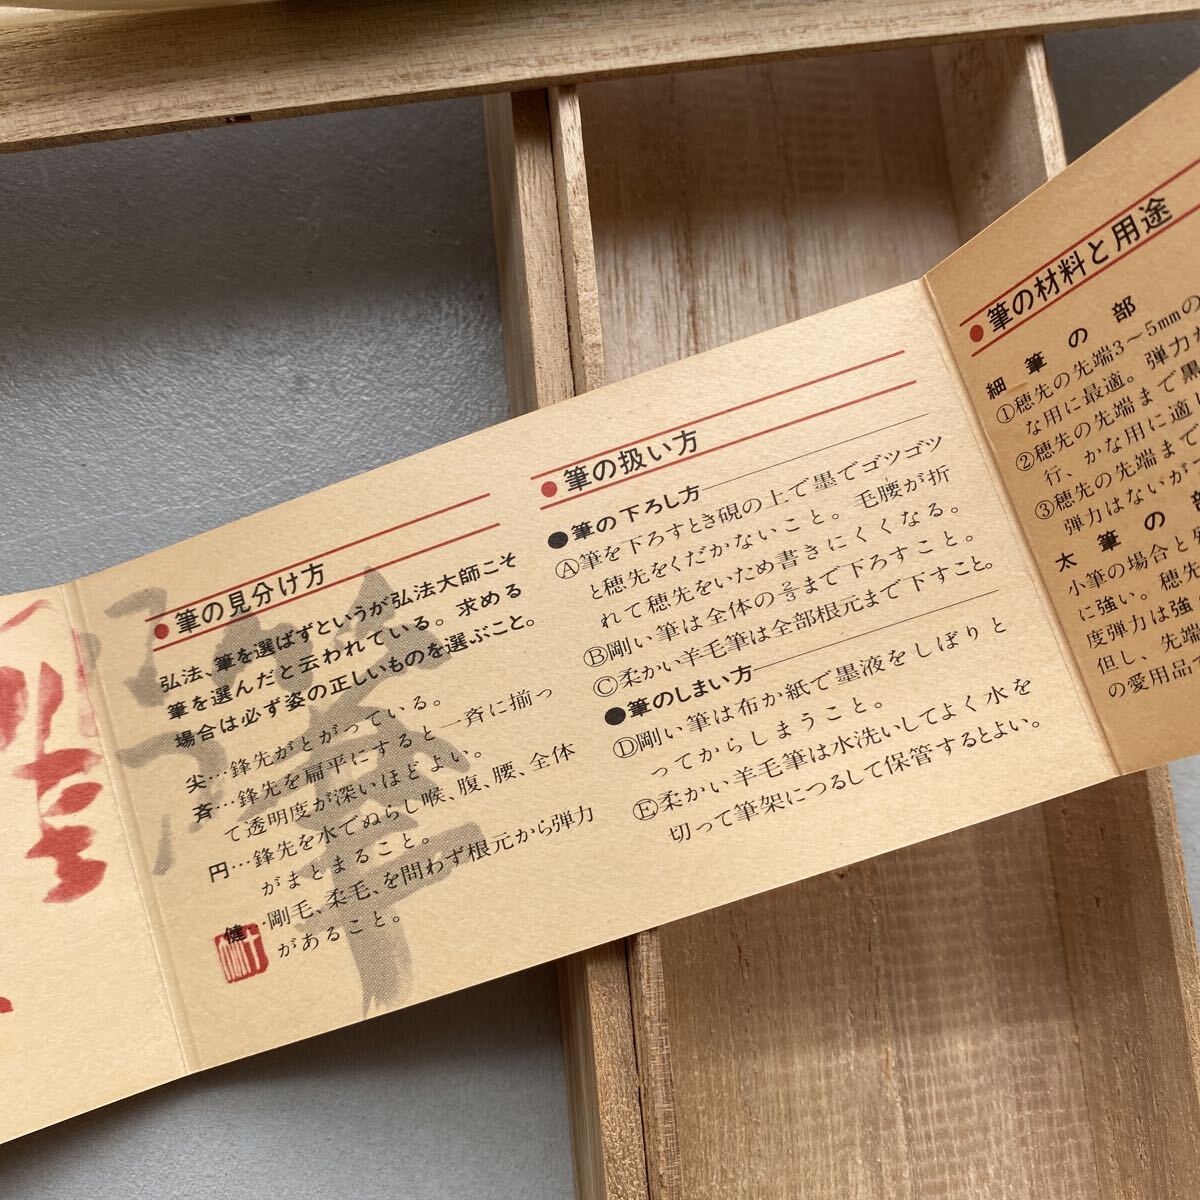 ●筆の見分け方
弘法、筆を選ばずというが弘法大師こそ
筆を選んだと云われている。求める
場合は必ず姿の正しいものを選ぶこと。
尖…鋒先がとがっている。
斉…鋒先を扁平にすると一斉に揃っ
て透明度が深いほどよい。
円…鋒先を水でぬらし喉、腹、腰、全体
がまとまること。
健…剛毛、柔毛、を問わず根元から弾力
があること。
●筆の扱い方
●筆の下ろし方
Ⓐ筆を下ろすとき硯の上で墨でゴツゴツ
と穂先をくだかないこと。毛腰が折
れて穂先をいため書きにくくなる。
Ⓑ剛い筆は全体の⅔まで下ろすこと。
Ⓒ柔かい羊毛筆は全部根元まで下すこと。
●筆のしまい方
Ⓓ剛い筆は布か紙で墨液をしぼりと
ってからしまうこと。
Ⓔ柔かい羊毛筆は水洗いしてよく水を
切って筆架につるして保管するとよい。
●筆の材料と用途
細筆の部
①穂先の先端3〜5mmの
な用に最適。弾力が
②穂先の先端まで黒
行、かな用に適し
③穂先の先端まで
弾力はないが
太筆の部
小筆の場合と
に強い。穂先
度弾力は強く
但し、先端
の愛用品で